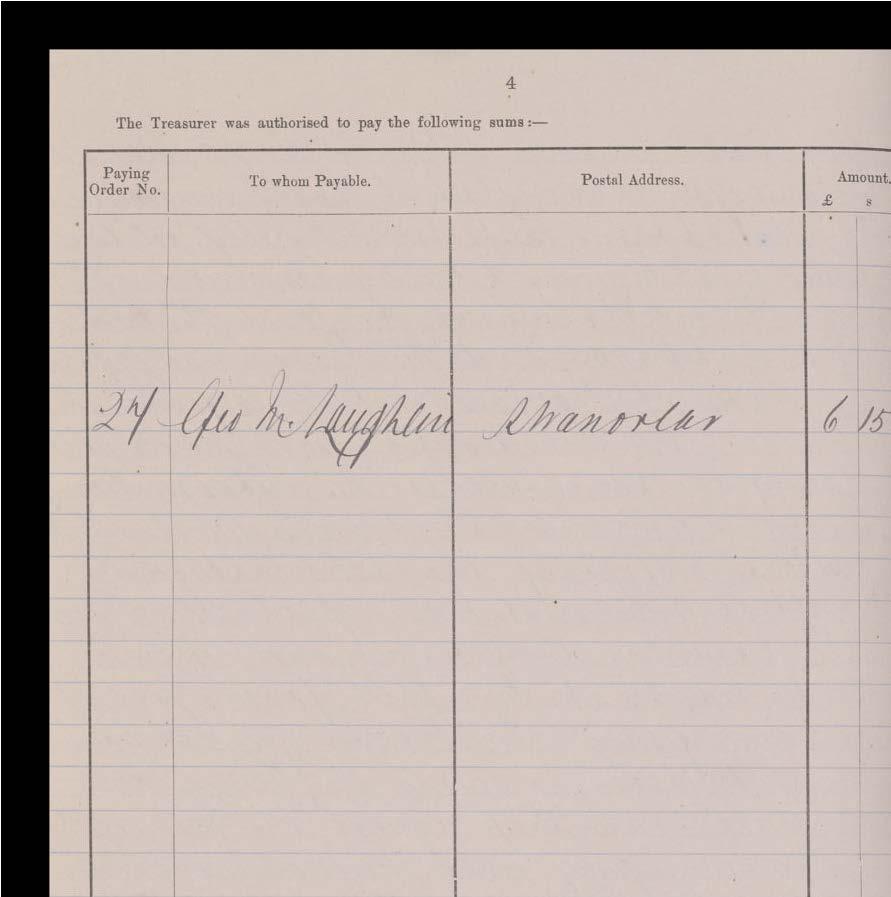 4
The Treasurer was authorised to pay the following sums:—
Paying Order No. To whom Payable. Postal Address. Amount.
£ s
27 Geo McLaughlin Stranorlar 6 15